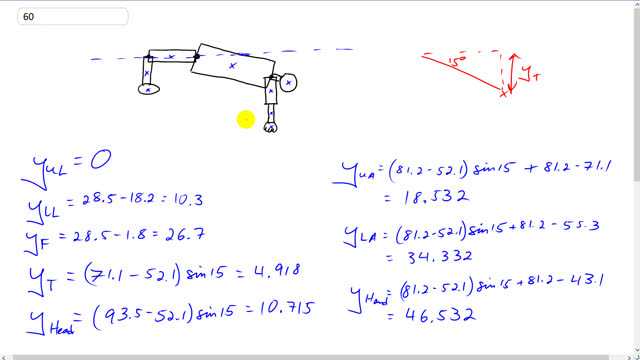 60
15°
y_T
y_UL = 0
y_LL = 28.5 - 18.2 = 10.3
y_F = 28.5 - 1.8 = 26.7
y_T = (71.1 - 52.1) sin 15 = 4.918
y_Head = (93.5 - 52.1) sin 15 = 10.715
y_UA = (81.2 - 52.1) sin 15 + 81.2 - 71.1
= 18.532
y_LA = (81.2 - 52.1) sin 15 + 81.2 - 55.3
= 34.332
y_Hand = (81.2 - 52.1) sin 15 + 81.2 - 43.1
= 46.532